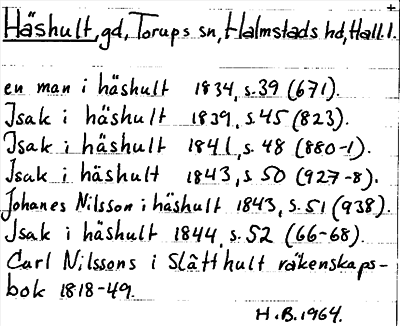 Häshult, gd, Torups sn, Halmstads hd, Hall.l.
en man i häshult 1834, s.39 (671).
Isak i häshult 1839, s.45 (823).
Isak i häshult 1841, s.48 (880-1).
Isak i häshult 1843, s 50 (927-8).
Johanes Nilsson i häshult 1843, s.51 (938).
Isak i häshult 1844, s.52 (66-68).
Carl Nilssons i Slätthult räkenskaps-
bok 1818-49.
H.B.1964.